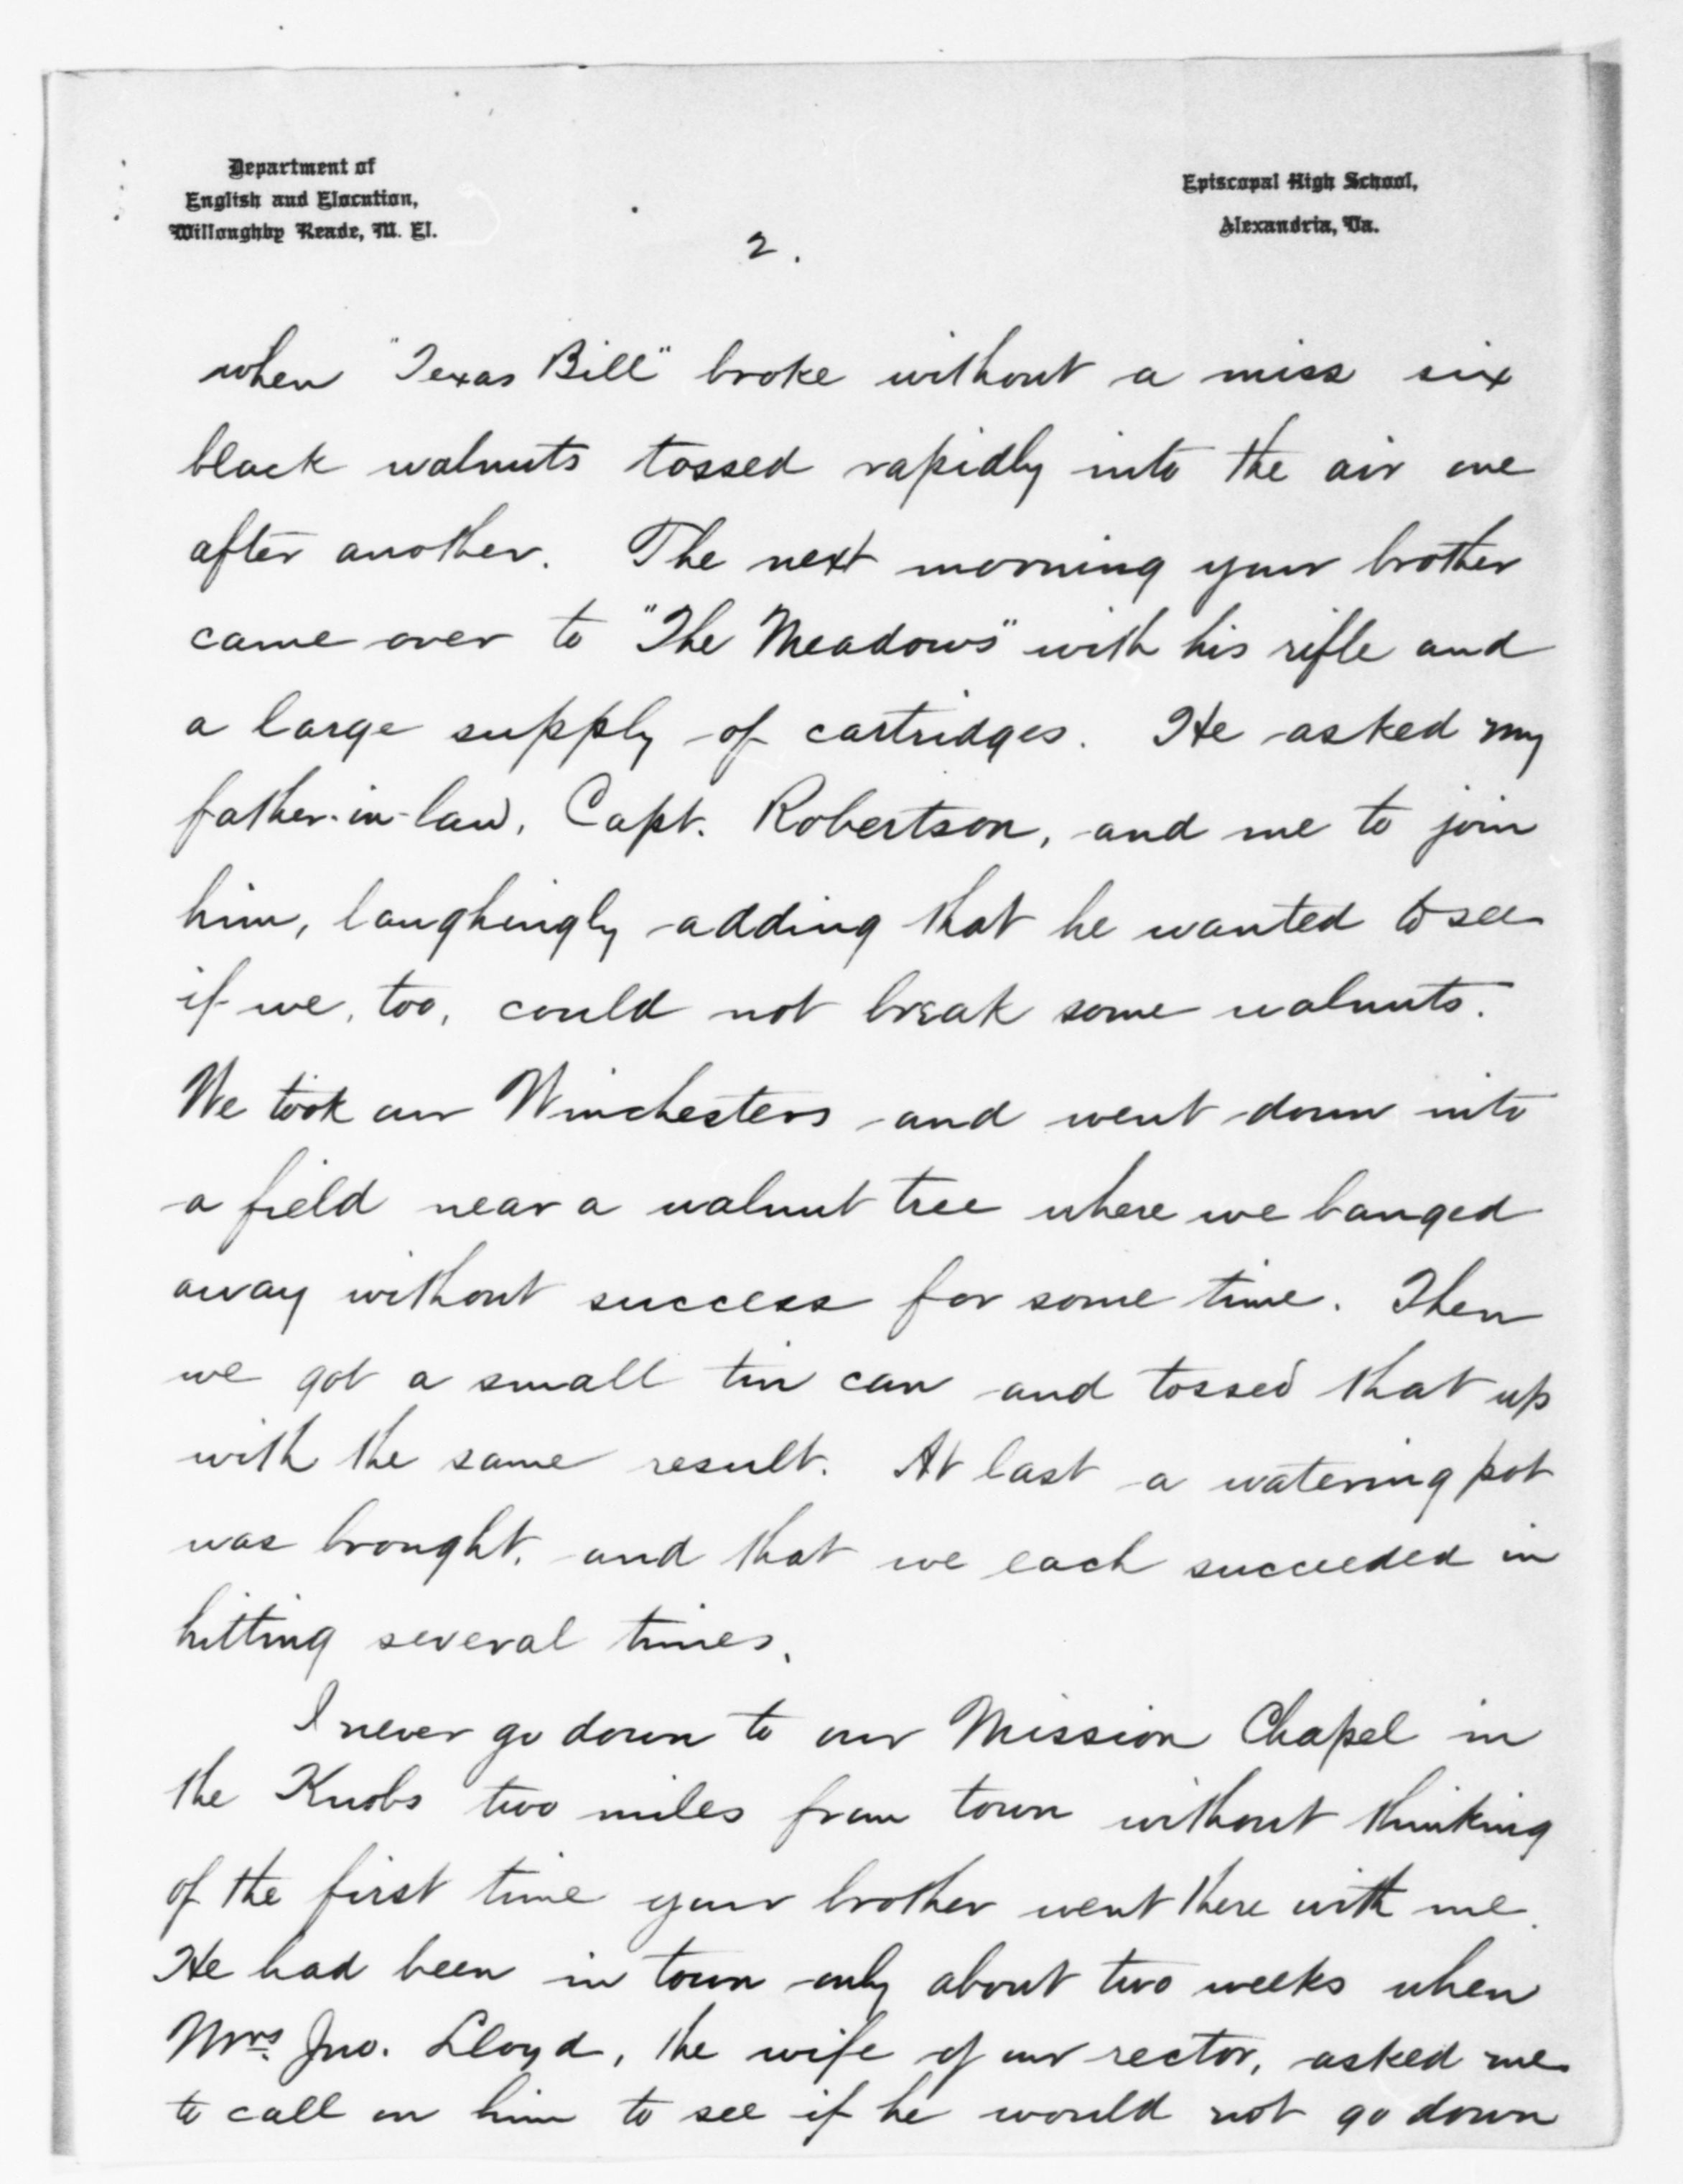 Department of
English and Elocution,
Willoughby Reade, M. El.
Episcopal High School,
Alexandria, Va.
2.
when "Texas Bill" broke without a miss six
black walnuts tossed rapidly into the air one
after another. The next morning your brother
came over to "The Meadows" with his rifle and
a large supply of cartridges. He asked my
father-in-law, Capt. Robertson, and me to join
him, laughingly adding that he wanted to see
if we, too, could not break some walnuts.
We took our Winchesters and went down into
a field near a walnut tree where we banged
away without success for some time. Then
we got a small tin can and tossed that up
with the same result. At last a watering pot
was brought, and that we each succeeded in
hitting several times.
I never go down to our Mission Chapel in
the Knobs two miles from town without thinking
of the first time your brother went there with me.
He had been in town only about two weeks when
Mrs. Jno. Lloyd, the wife of our rector, asked me
to call on him to see if he would not go down